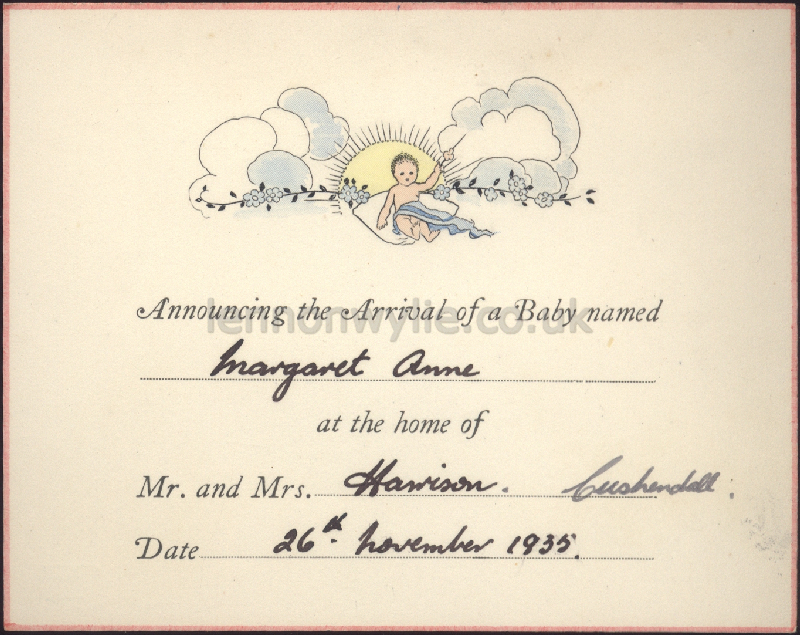 Announcing the Arrival of a Baby named
lennonwylie.co.uk
Margaret Anne
at the home of
Mr. and Mrs. Harrison. Cushendall.
Date 26th. November 1935.